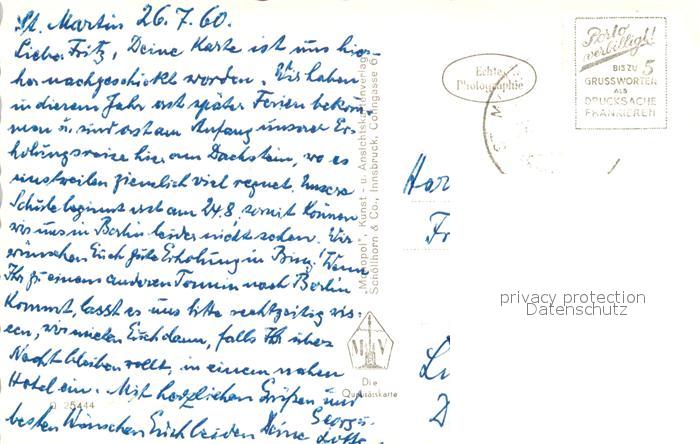 St. Martin 26.7.60.
Lieber Fritz, Deine Karte ist uns hier-
her nachgeschickt worden. Wir haben
in diesem Jahr erst später Ferien bekom-
men u. sind erst am Anfang unserer Er-
holungsreise hier am Dachstein, wo es
einstweilen ziemlich viel regnet. Unsere
Schule beginnt erst am 24.8. somit können
wir uns in Berlin leider nicht sehen. Wir
wünschen Euch gute Erholung in Burg! Wenn
Ihr zu einem anderen Termin nach Berlin
kommt, lasst es uns bitte rechtzeitig wis-
sen, wir mieten Euch dann, falls Ihr über
Nacht bleiben wollt, in einem nahen
Hotel ein. Mit herzlichen Grüßen und
besten Wünschen Euch beiden Deine
Georg u.
Lotte
O 25444
"Monopol", Kunst- u. Ansichtskartenverlag
Schöllhorn & Co., Innsbruck, Colingasse 6
M V
Die
Qualitätskarte
Echte
Photographie
ST. M
Porto
verbilligt!
BIS ZU 5
GRUSSWORTEN
ALS
DRUCKSACHE
FRANKIEREN
Har
Fr
Li
D
privacy protection
Datenschutz